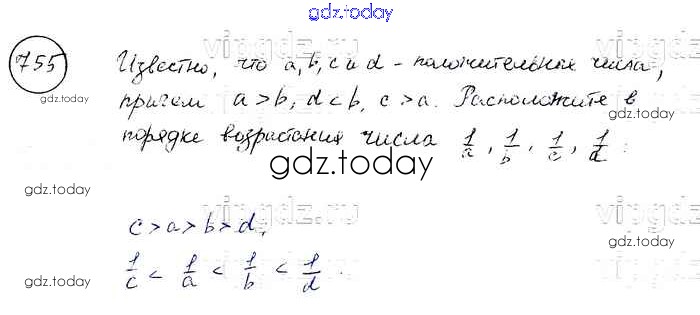 gdz.today
755 Известно, что a, b, c и d - положительные числа,
причем a > b, d < b, c > a. Расположите в
порядке возрастания числа 1/a, 1/b, 1/c, 1/d :
gdz.today
gdz.today
gdz.today
vipgdz.ru
gdz.today
vipgdz.ru
gdz.today
c > a > b > d,
1/c < 1/a < 1/b < 1/d .
gdz.today
gdz.today